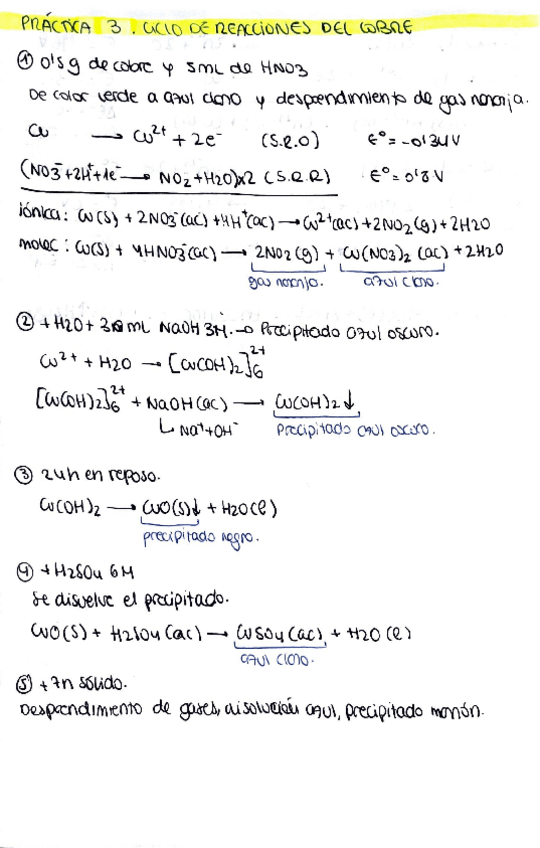 PRÁCTICA 3. CICLO DE REACCIONES DEL COBRE
① 0'5g de cobre y 5mL de HNO3
De color verde a azul claro y desprendimiento de gas naranja.
Cu → Cu²⁺ + 2e⁻ (S.R.O) E° = -0'34V
(NO3⁻+2H⁺+1e⁻ → NO2+H2O)x2 (S.R.R) E° = 0'8V
iónica: Cu(s) + 2NO3⁻(ac) + 4H⁺(ac) → Cu²⁺(ac) + 2NO2(g) + 2H2O
molec: Cu(s) + 4HNO3(ac) → 2NO2(g) + Cu(NO3)2 (ac) + 2H2O
gas naranja. azul claro.
② + H2O + mL NaOH 3M. → Precipitado azul oscuro.
Cu²⁺ + H2O → [Cu(OH)2]6²⁺
[Cu(OH)2]6²⁺ + NaOH(ac) → Cu(OH)2↓
↳ Na⁺+OH⁻ precipitado azul oscuro.
③ 24h en reposo.
Cu(OH)2 → CuO(s)↓ + H2O(l)
precipitado negro.
④ + H2SO4 6M
Se disuelve el precipitado.
CuO(s) + H2SO4(ac) → CuSO4(ac) + H2O(l)
azul claro.
⑤ + Zn sólido.
Desprendimiento de gases, disolución azul, precipitado marrón.